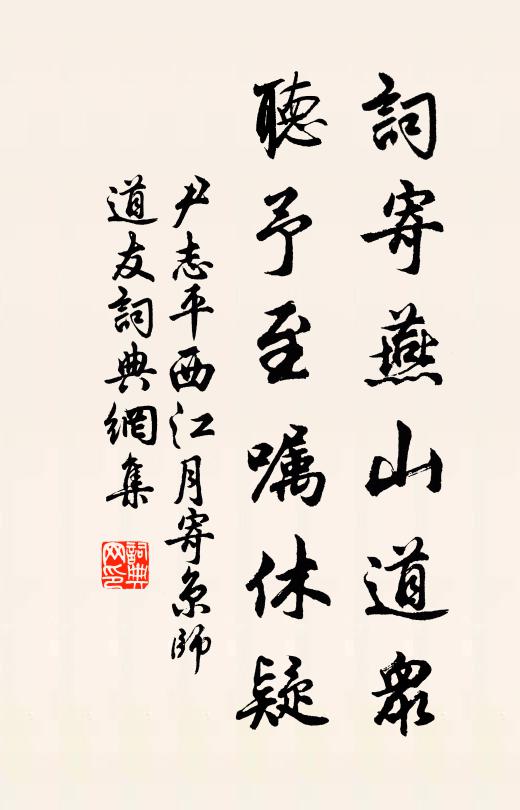 詞寄燕山道眾
聽予至嘱休疑
尹志平西江月寄京師
道友詞典網集
詞典网印